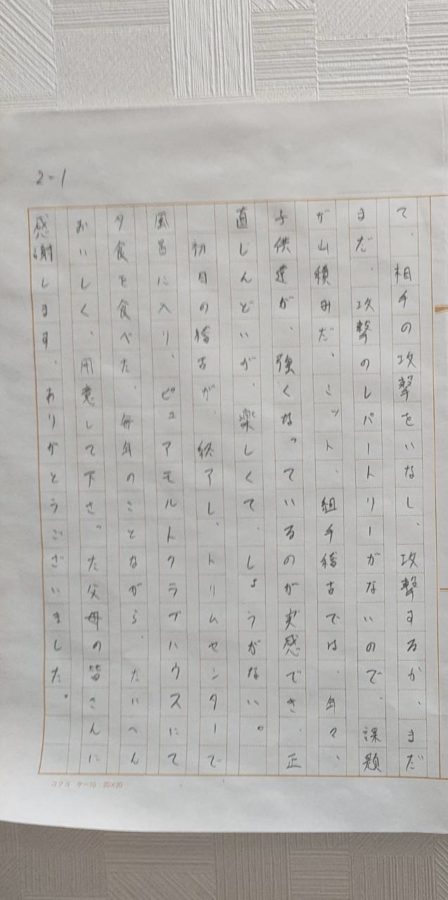 2-1
て、相手の攻撃をいなし、攻撃するが、まだ
まだ、攻撃のレパートリーがないので、課題
が山積みだ。ミット、組手稽古では、年々、
子供達が、強くなっているのが実感でき、正
直しんどいが、楽しくて、しょうがない。
初日の稽古が、終了し、トリムセンターで
風呂に入り、ピュアモルトクラブハウスにて
夕食を食べた。毎年のことながら、たいへん
おいしく、用意して下さった父母の皆さんに
感謝します。ありがとうございました。
コクヨ